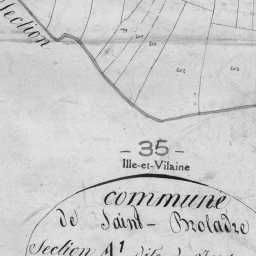 Section
- 35 -
Ille-et-Vilaine
commune
de Saint-Broladre
Section A1 dite